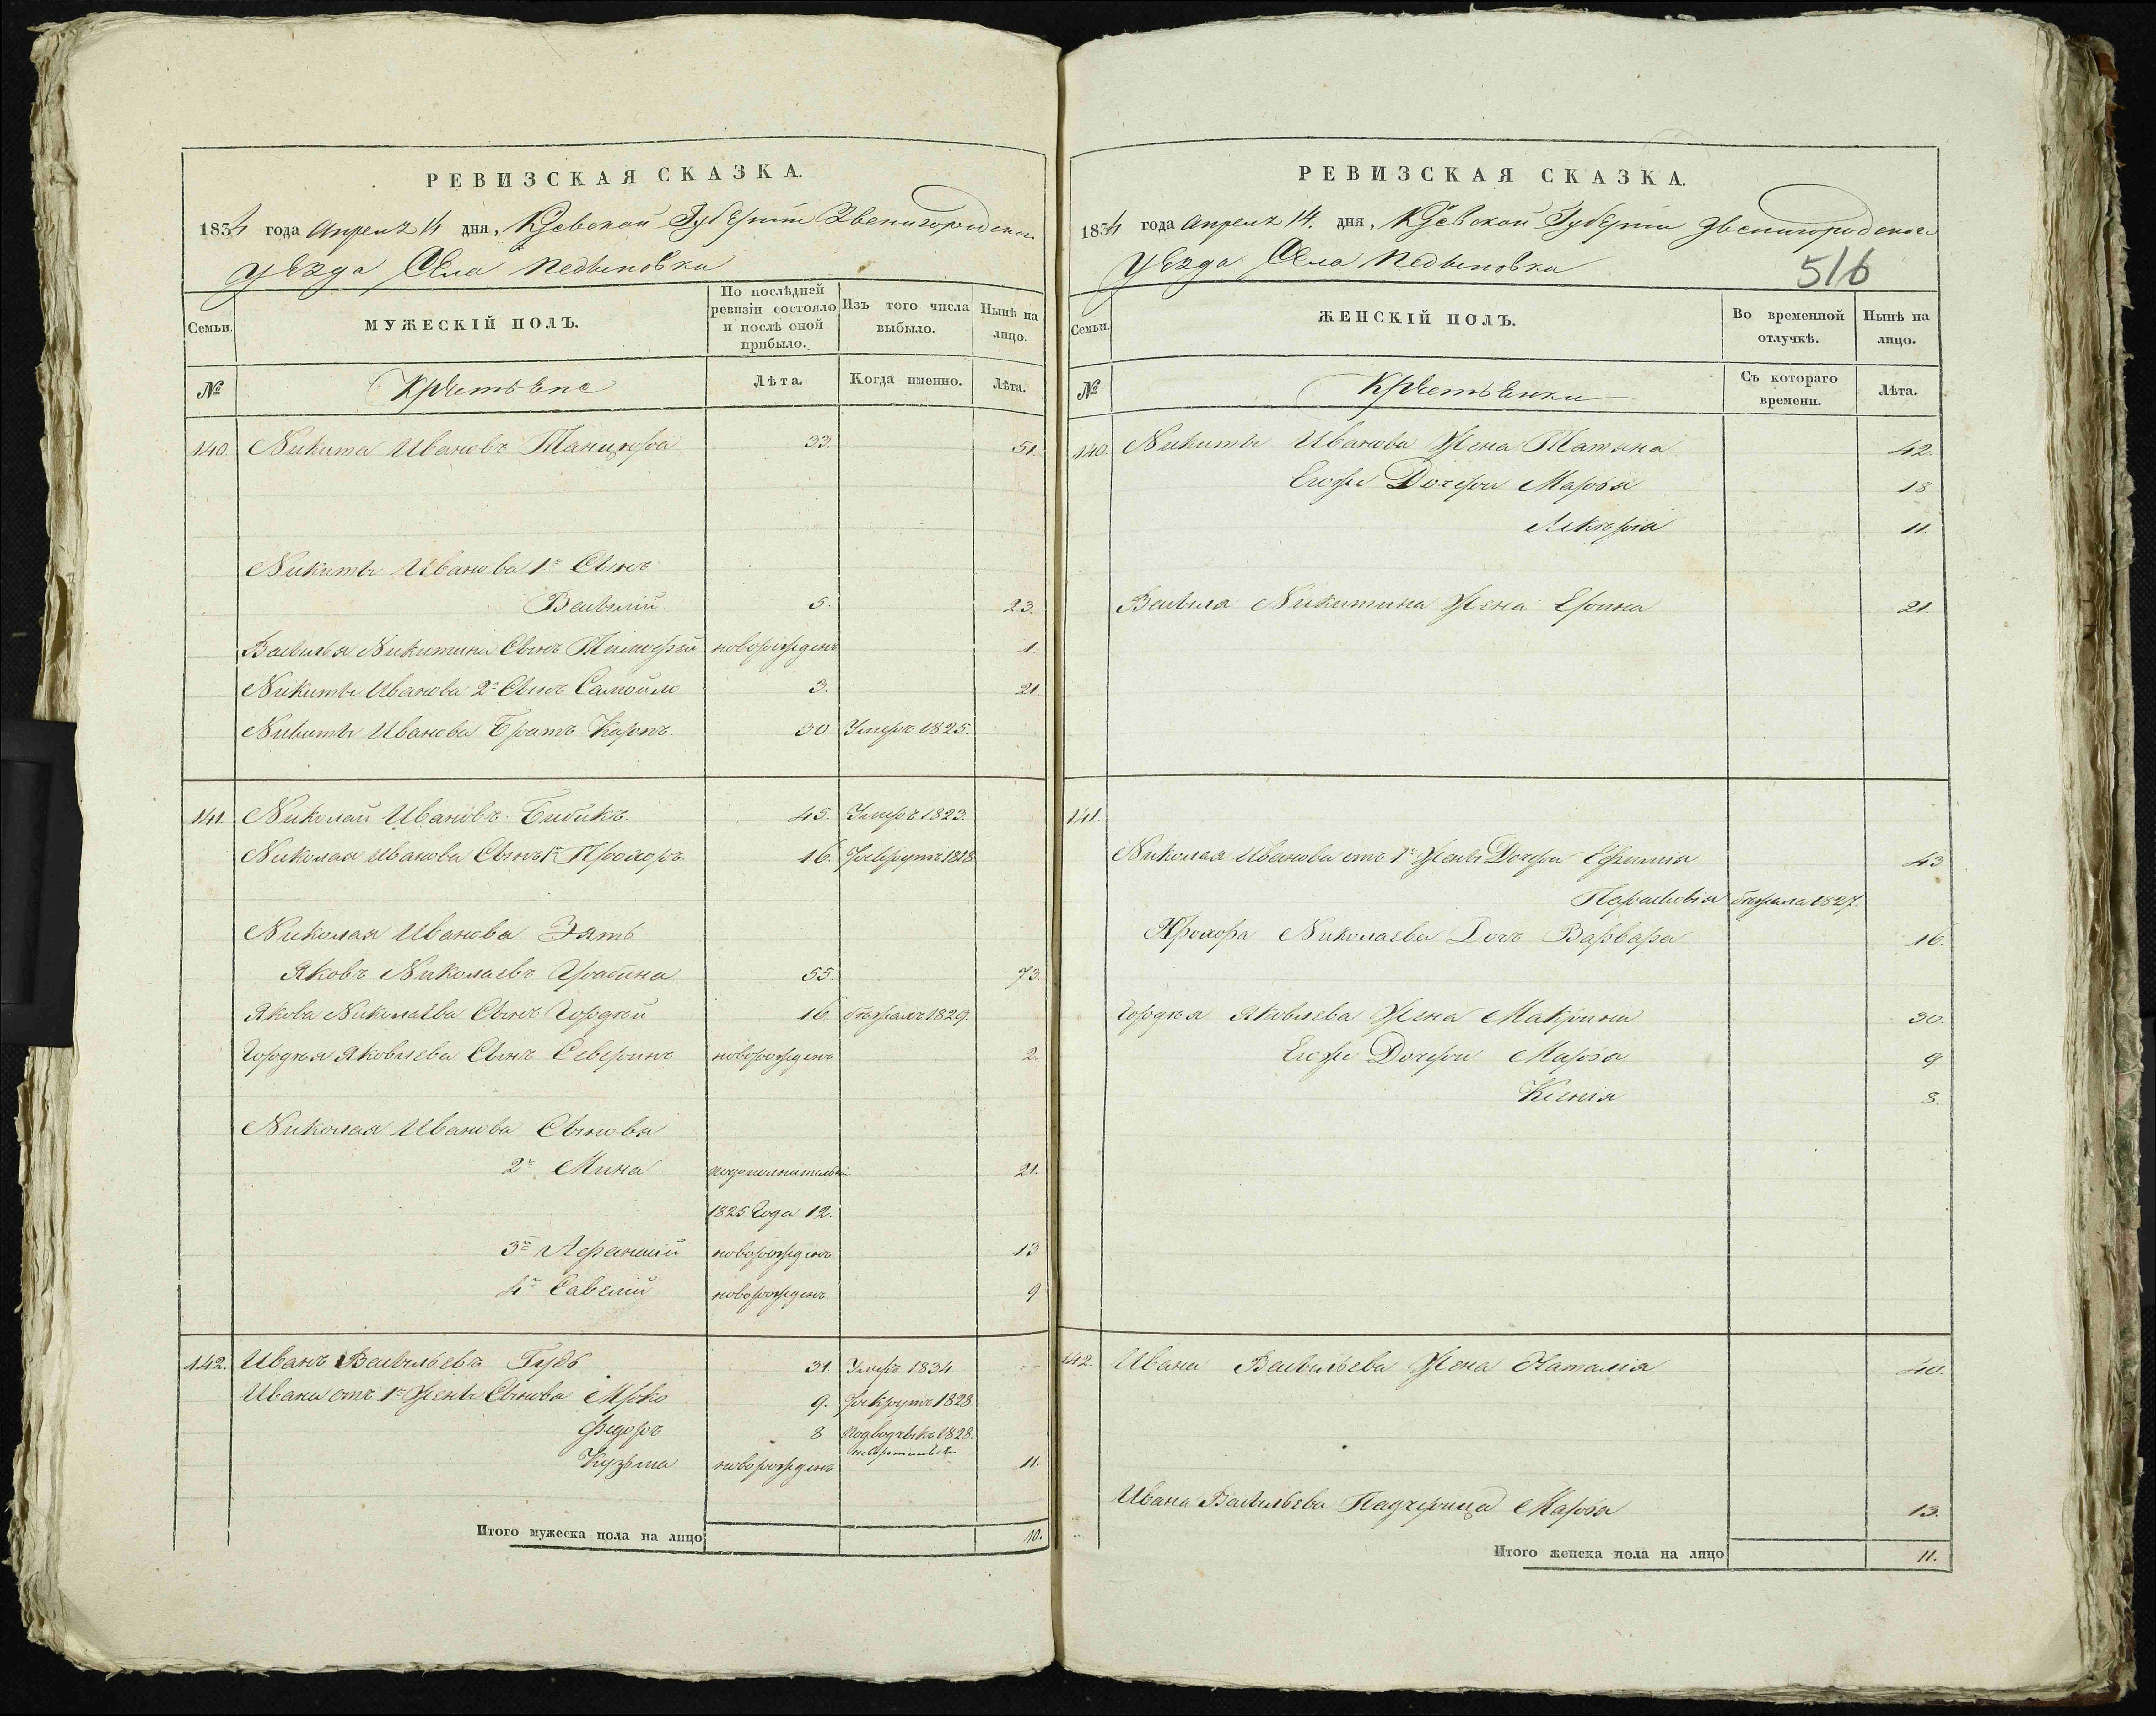 РЕВИЗСКАЯ СКАЗКА.
1834 года Апреля 14 дня, Кіевской Губерніи Звенигородскаго
уезда Села Педыновки
Семьи.
МУЖЕСКІЙ ПОЛЪ.
По послѣдней ревизіи состояло и послѣ оной прибыло.
Изъ того числа выбыло.
Нынѣ на лицо.
№
Крестьяне
Лѣта.
Когда именно.
Лѣта.
140. Никита Ивановъ 33. 51.
Никиты Иванова 1й Сынъ
Василій 5. 23.
Василья Никитина Сынъ Тимофей новорожденъ 1.
Никиты Иванова 2й Сынъ Самойло 3. 21.
Никиты Иванова Братъ Карпъ 30 Умеръ 1825.
141. Николай Ивановъ Бибикъ 45. Умеръ 1823.
Николая Иванова Сынъ 1й Прохоръ 16. Рекрутъ 1818
Николая Иванова Зять
Яковъ Николаевъ 55. 73.
Якова Николаева Сынъ Гордѣй 16. бѣжалъ 1829.
Гордѣя Яковлева Сынъ Северинъ новорожденъ 2.
Николая Иванова Сыновья
2й Мина 21.
1825 Года 12.
3й Афанасій новорожденъ 13
4й Савелій новорожденъ. 9
142. Иванъ Васильевъ 31. Умеръ 1834.
Ивана отъ 1й Жены Сыновья Мрко 9. Рекрутъ 1828.
Федоръ 8 1828.
Кузьма новорожденъ 11.
Итого мужеска пола на лицо 10.
РЕВИЗСКАЯ СКАЗКА.
1834 года Апреля 14. дня, Кіевской Губерніи Звенигородскаго
уезда Села Педыновки
516
Семьи.
ЖЕНСКІЙ ПОЛЪ.
Во временной отлучкѣ.
Нынѣ на лицо.
№
Крестьянки
Съ котораго времени.
Лѣта.
140. Никиты Иванова Жена Татьяна 42.
Егоже Дочери Марѳа 18
Лукерія 11.
Василя Никитина Жена Ерина 21.
141.
Николая Иванова отъ 1й Жены Дочери Ефимія 43
Парасковія бѣжала 1827.
Прохора Николаева Дочь Варвара 16.
Гордѣя Яковлева Жена Макрина 30.
Егоже Дочери Марѳа 9
Ксенія 8.
142. Ивана Васильева Жена Наталія 40.
Ивана Васильева Падчерица Марѳа 13.
Итого женска пола на лицо 11.